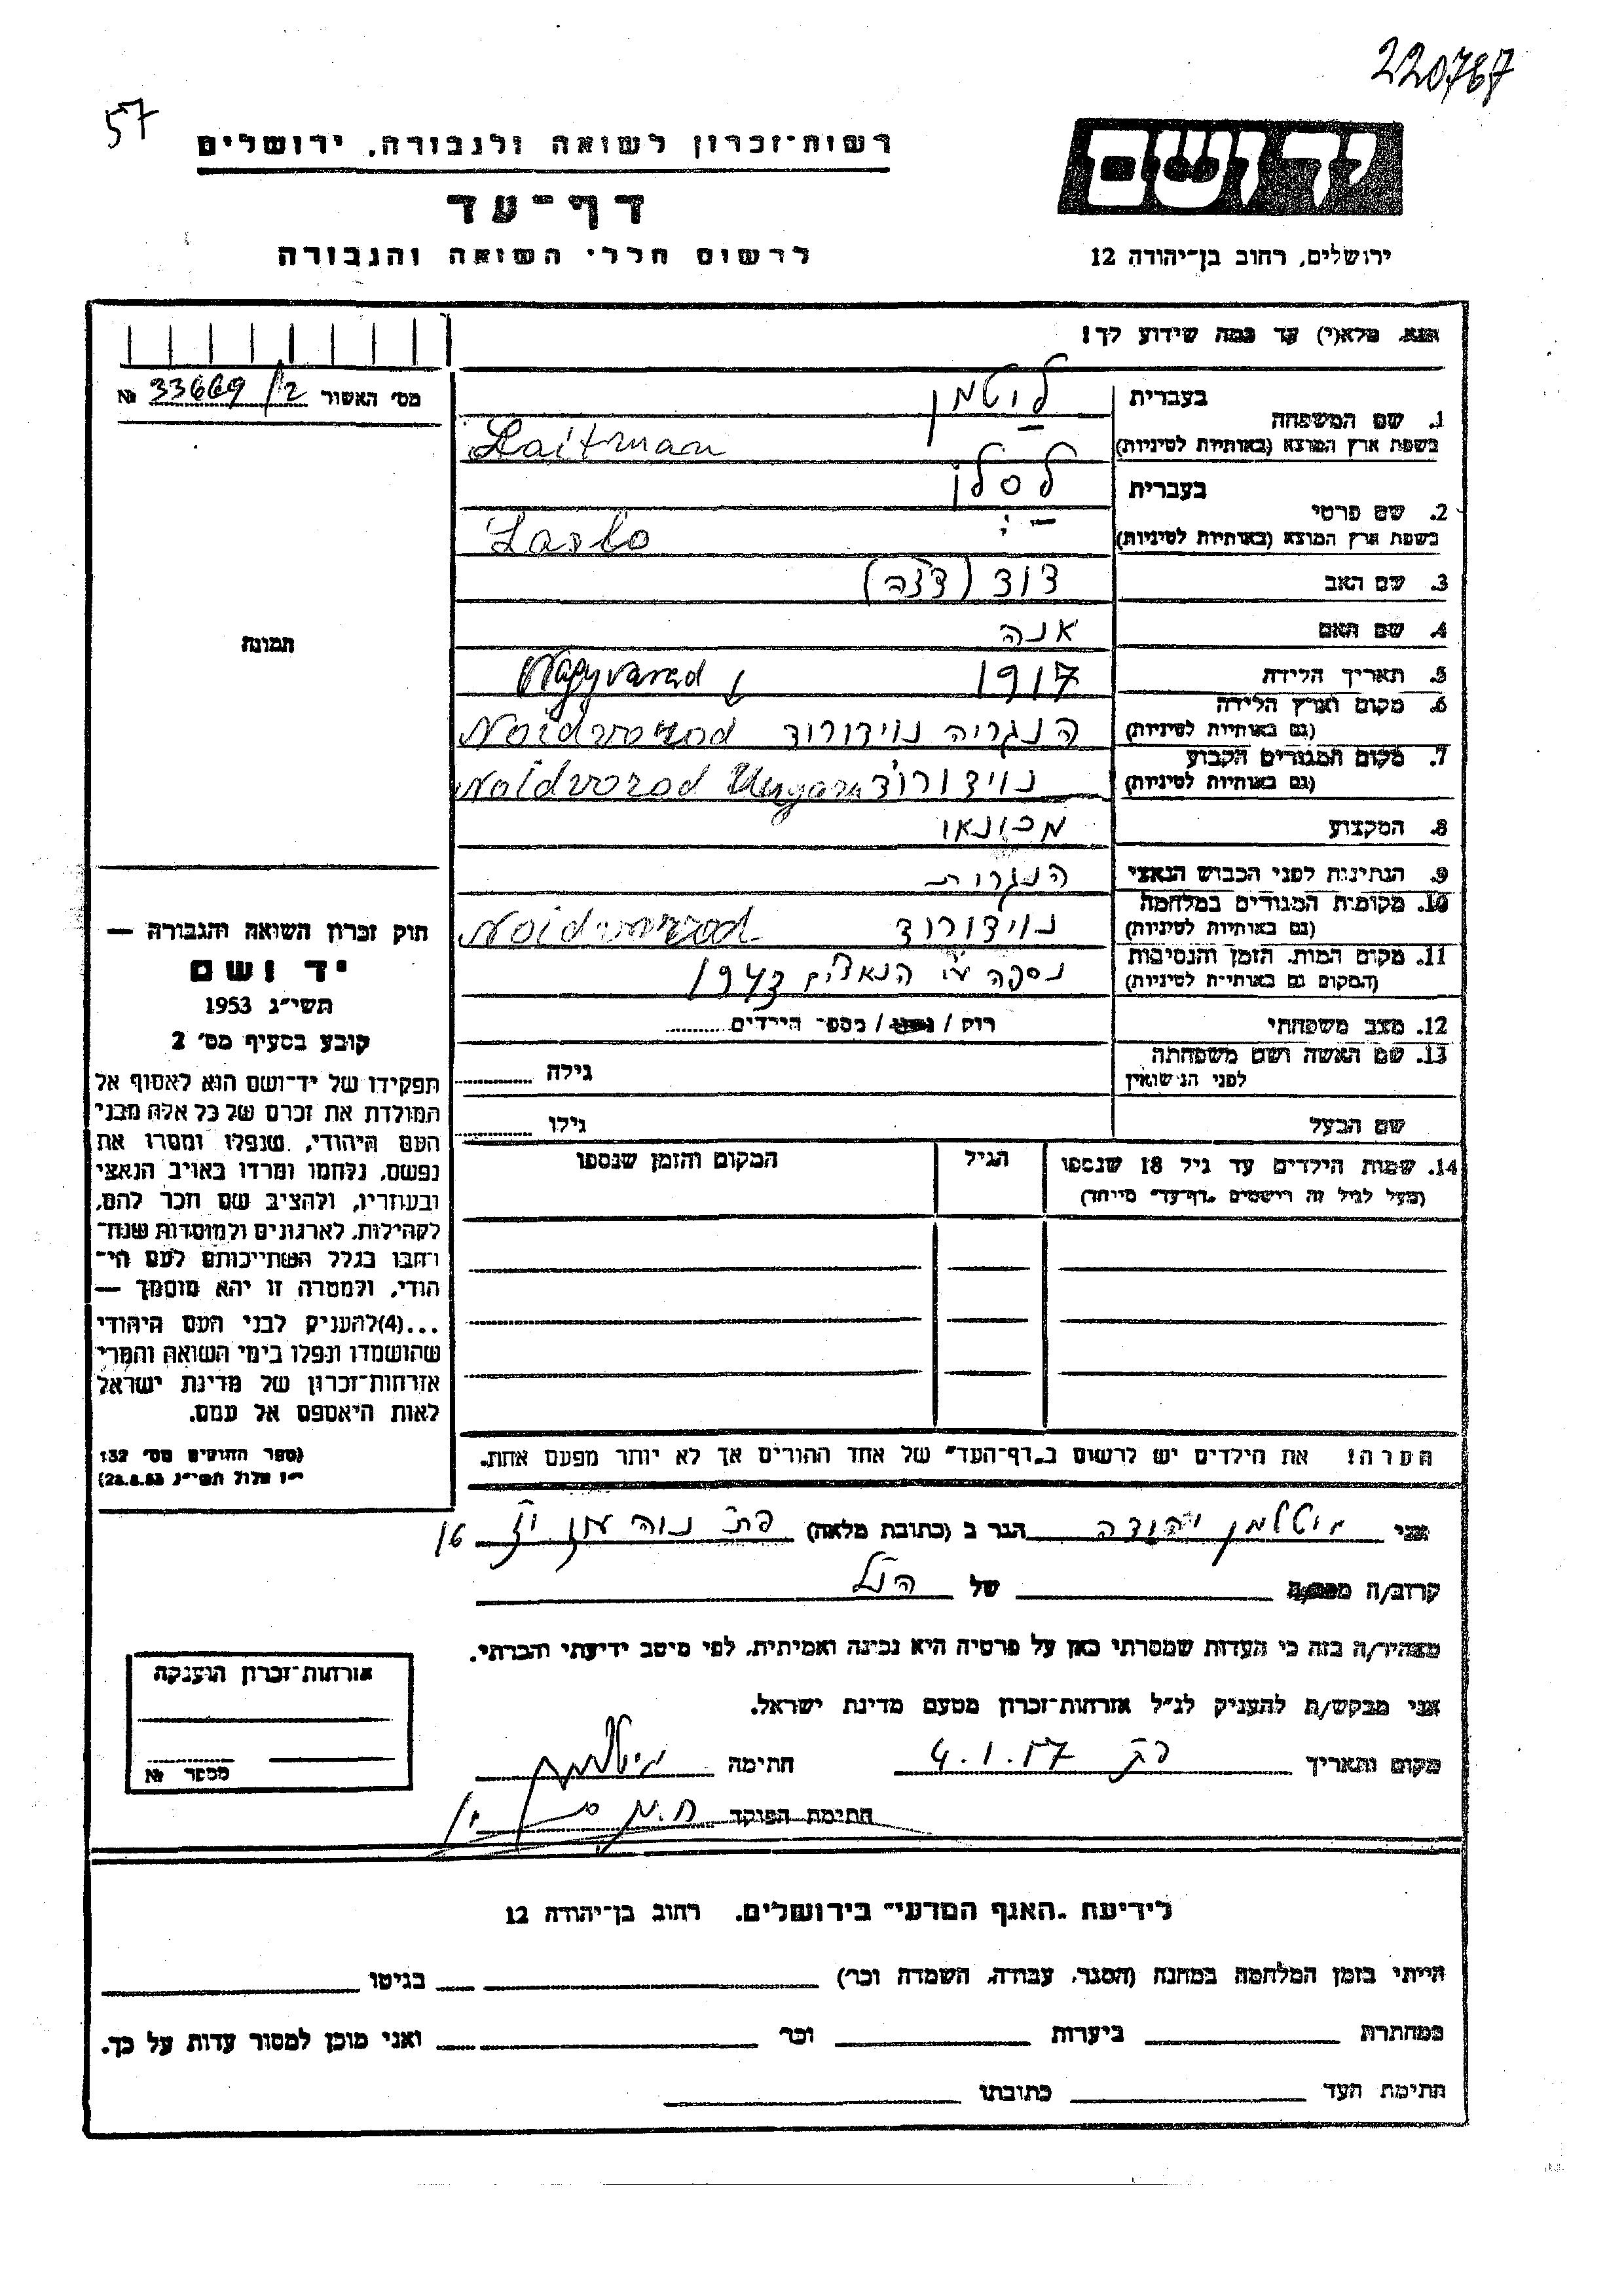 220767
57
יד ושם
רשות־זכרון לשואה ולגבורה, ירושלים
דף־עד
לרשום חללי השואה והגבורה
ירושלים, רחוב בן־יהודה 12
נא מלא(י) עד כמה שידוע לך!
מס׳ האשור 33669/2 №
1. שם המשפחה
בעברית
ליטמן
בשפת ארץ המוצא (באותיות לטיניות)
Laitman
2. שם פרטי
בעברית
לסלו
בשפת ארץ המוצא (באותיות לטיניות)
Laslo
3. שם האב דוד
4. שם האם אנה
תמונה
5. תאריך הלידה 1917
Nagyvarad
6. מקום וארץ הלידה
(גם באותיות לטיניות)
הנגריה נוידורוד Noidvorod
7. מקום המגורים הקבוע
(גם באותיות לטיניות)
נוידורוד Noidvorod Ungarn
8. המקצוע מכונאי
9. הנתינות לפני הכבוש הנאצי הנגרית
10. מקומות המגורים במלחמה
(גם באותיות לטיניות)
נוידורוד Noidvorod
11. מקום המות, הזמן והנסיבות
(המקום גם באותיות לטיניות)
נספה ע״י הנאצים 1943
12. מצב משפחתי רוק / נשוי / מספר הילדים
13. שם האשה ושם משפחתה
לפני הנישואין
גילה
שם הבעל גילו
14. שמות הילדים עד גיל 18 שנספו
(מעל לגיל זה רושמים „דף־עד״ מיוחד)
הגיל
המקום והזמן שנספו
הערה! את הילדים יש לרשום ב„דף־העד״ של אחד ההורים אך לא יותר מפעם אחת.
חוק זכרון השואה והגבורה —
יד ושם
תשי״ג 1953
קובע בסעיף מס׳ 2
תפקידו של יד־ושם הוא לאסוף אל
המולדת את זכרם של כל אלה מבני
העם היהודי, שנפלו ומסרו את
נפשם, נלחמו ומרדו באויב הנאצי
ובעוזריו, ולהציב שם וזכר להם,
לקהילות, לארגונים ולמוסדות שנח־
רבו בגלל השתייכותם לעם הי־
הודי, ולמטרה זו יהא מוסמך —
...(4) להעניק לבני העם היהודי
שהושמדו ונפלו בימי השואה והמרי
אזרחות־זכרון של מדינת ישראל
לאות היאספם אל עמם.
(ספר החוקים מס׳ 132
י״ז אלול תשי״ג 28.8.53)
אני יהודה הגר ב (כתובת מלאה) נוה
קרוב/ה מכר/ה של הנ״ל
מצהיר/ה בזה כי העדות שמסרתי כאן על פרטיה היא נכונה ואמיתית, לפי מיטב ידיעתי והכרתי.
אני מבקש/ת להעניק לנ״ל אזרחות־זכרון מטעם מדינת ישראל.
מקום ותאריך 4.1.57 חתימה
חתימת הפוקד
אזרחות־זכרון הוענקה
מספר №
לידיעת „האגף המדעי״ בירושלים, רחוב בן־יהודה 12
הייתי בזמן המלחמה במחנה (הסגר, עבודה, השמדה וכו׳) בגיטו
במחתרת ביערות וכו׳ ואני מוכן למסור עדות על כך.
חתימת העד כתובתו